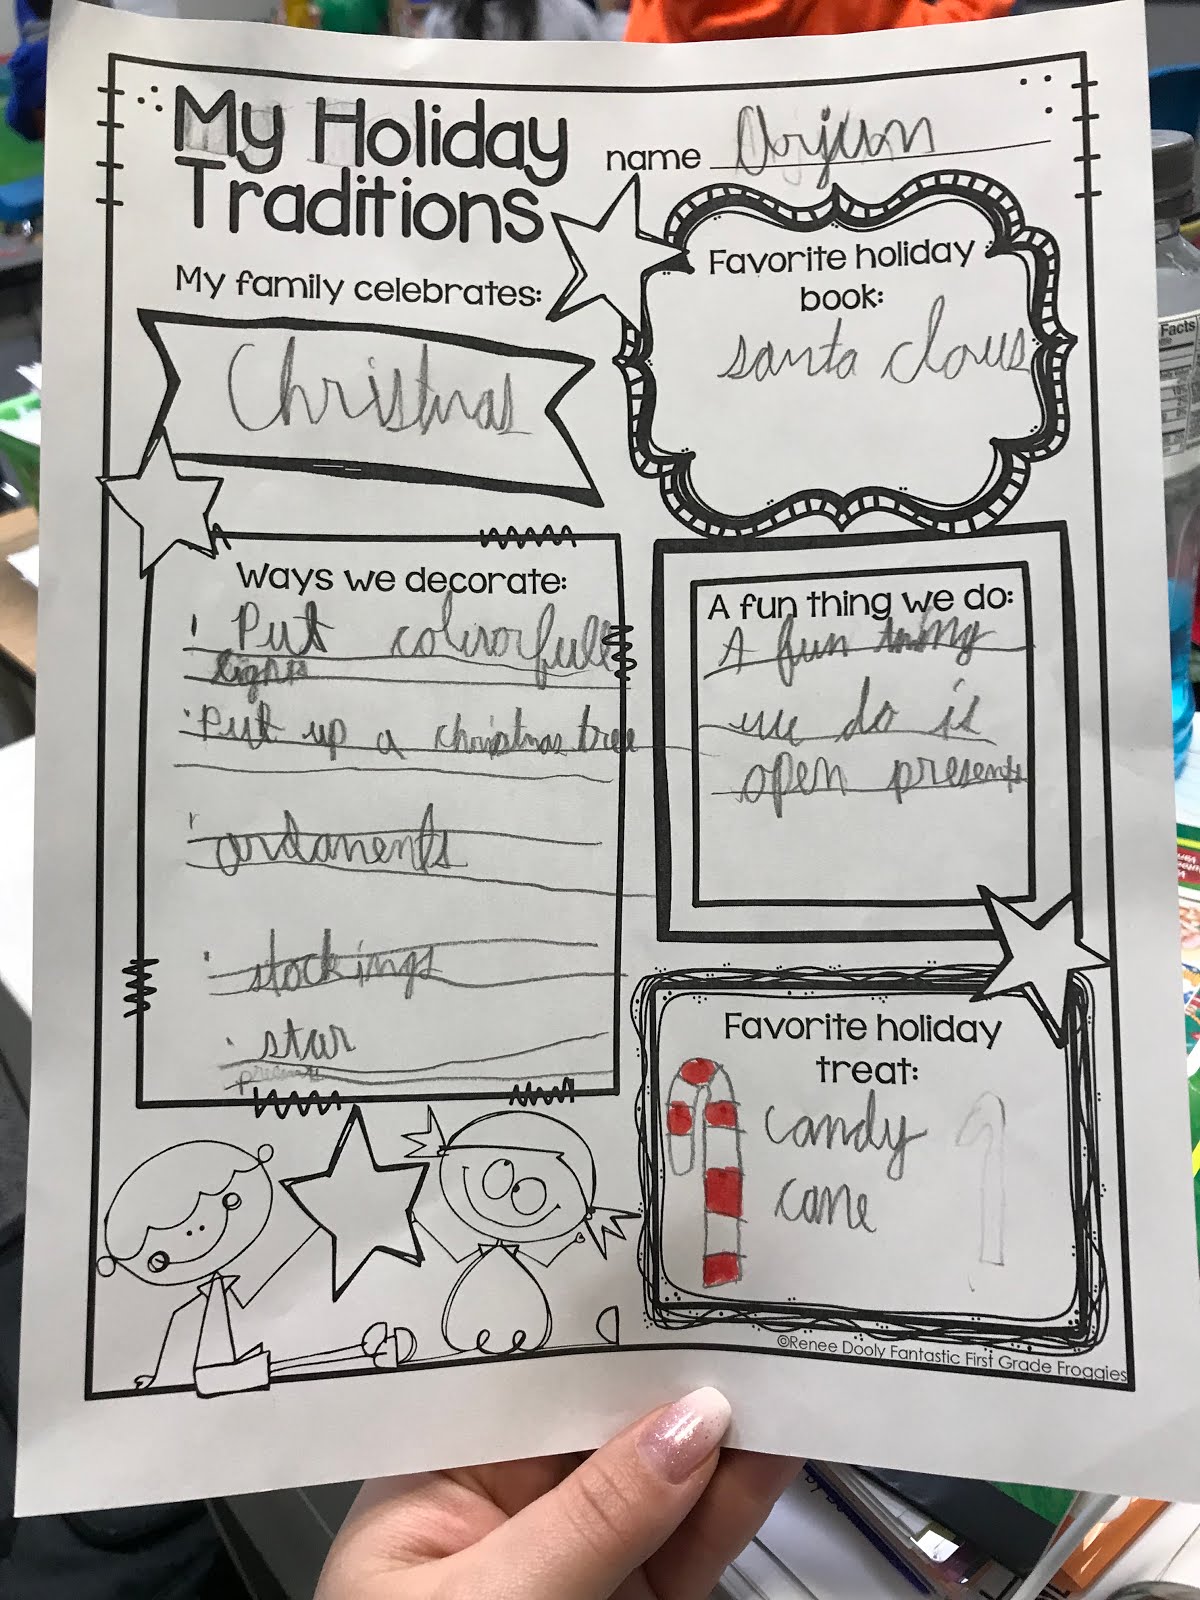 My Holiday
Traditions
name Arjun
My family celebrates:
Christmas
Favorite holiday
book:
santa claus
Ways we decorate:
Put colourfull
lights
Put up a christmas tree
ordanents
stockings
star
presents
A fun thing we do:
A fun thing
we do is
open presents
Favorite holiday
treat:
candy
cane
©Renee Dooly Fantastic First Grade Froggies
Facts